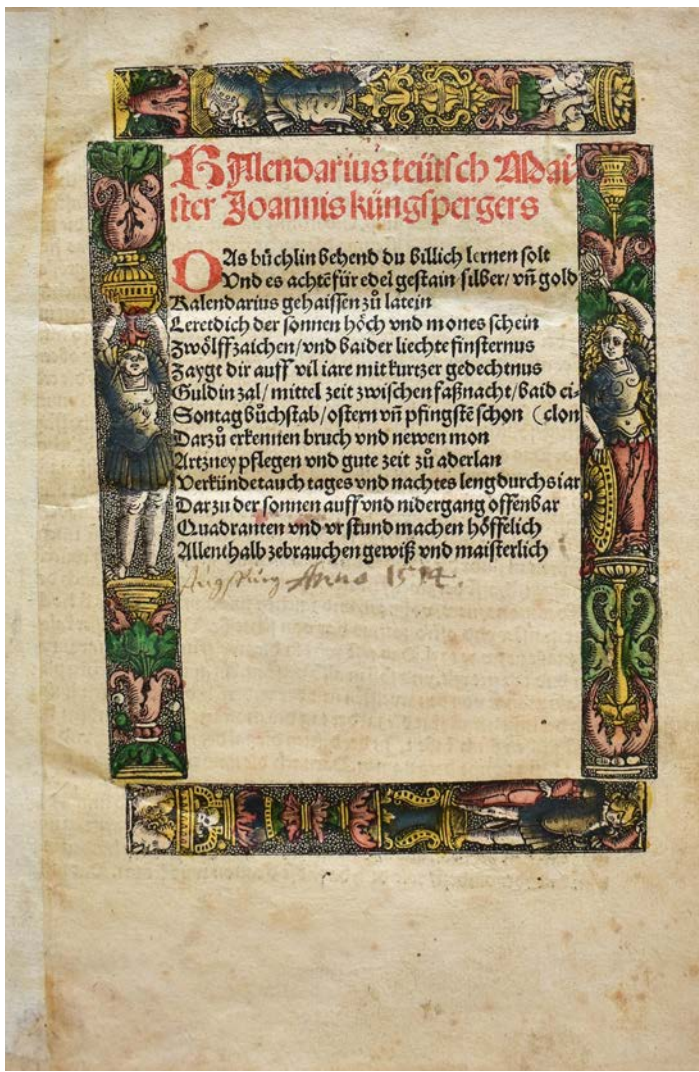 Kalendarius teütsch Mai-
ster Joannis küngspergers
DAs bůchlin behend du billich lernen solt
Vnd es achtē für edel gestain silber/ vn̄ gold
Kalendarius gehaissen zů latein
Leret dich der sonnen höch vnd mones schein
Zwölff zaichen/ vnd baider liechte finsternus
Zaygt dir auff vil iare mit kurtzer gedechtnus
Guldin zal/ mittel zeit zwischen faßnacht/ baid ci-
Sontag bůchstab/ ostern vn̄ pfingstē schon (clon
Darzů erkennen bruch vnd newen mon
Artzney pflegen vnd gute zeit zů aderlan
Verkündet auch tages vnd nachtes leng durchs iar
Darzu der sonnen auff vnd nidergang offenbar
Quadranten vnd vr stund machen höffelich
Allenthalb zebrauchen gewiß vnd maisterlich
Augspurg Anno 1514.